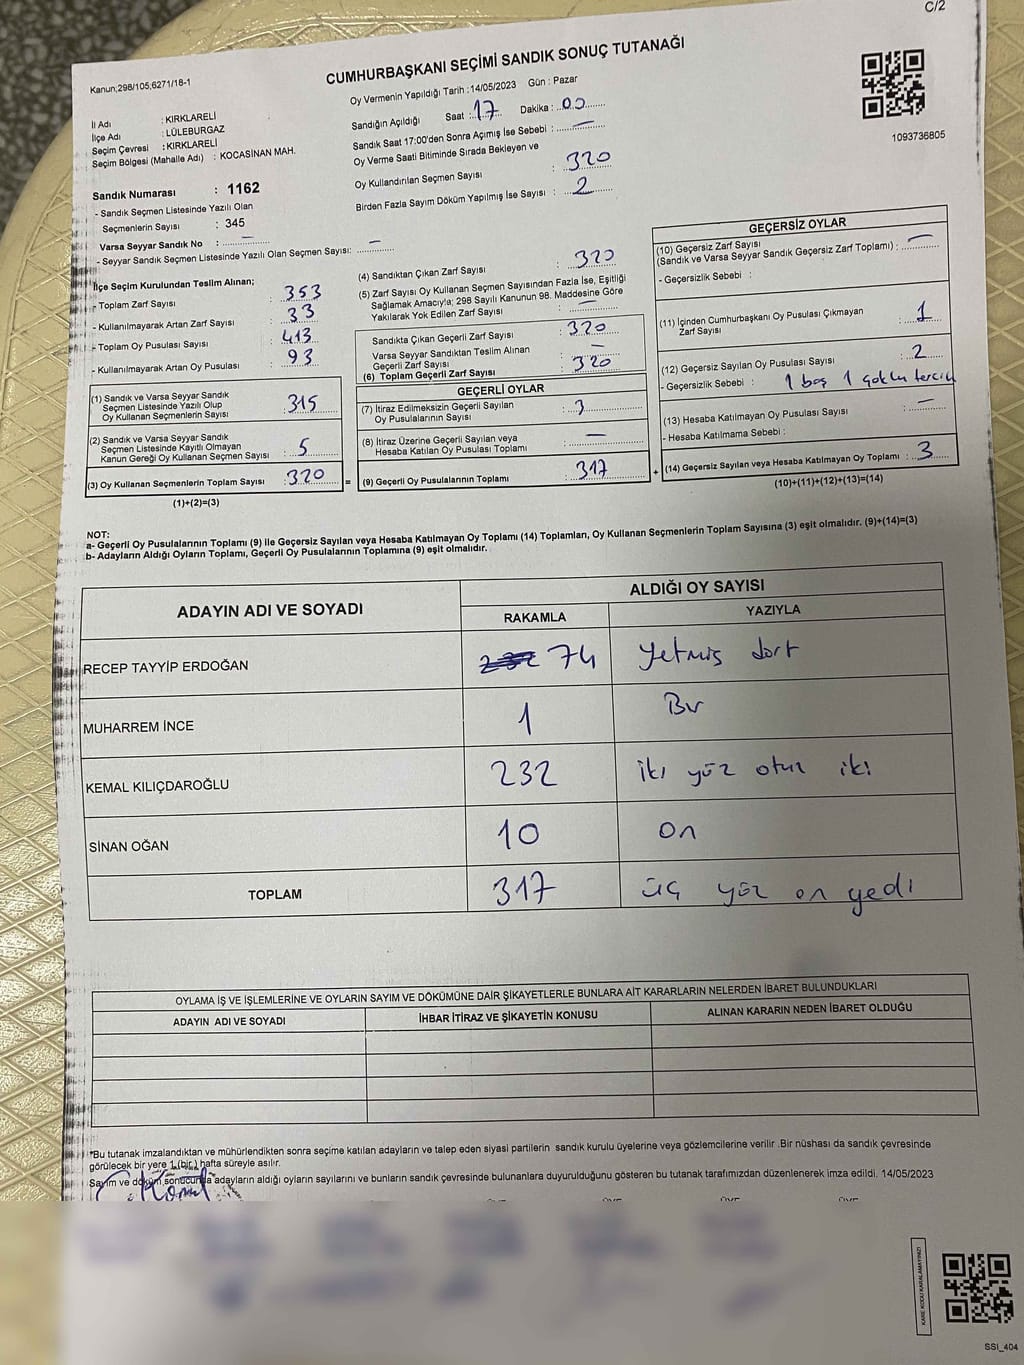 C/2
Kanun;298/105;6271/18-1
CUMHURBAŞKANI SEÇİMİ SANDIK SONUÇ TUTANAĞI
İl Adı : KIRKLARELİ
İlçe Adı : LÜLEBURGAZ
Seçim Çevresi : KIRKLARELİ
Seçim Bölgesi (Mahalle Adı) : KOCASİNAN MAH.
Sandık Numarası : 1162
- Sandık Seçmen Listesinde Yazılı Olan
Seçmenlerin Sayısı : 345
Varsa Seyyar Sandık No : –
- Seyyar Sandık Seçmen Listesinde Yazılı Olan Seçmen Sayısı: –
Oy Vermenin Yapıldığı Tarih :14/05/2023 Gün : Pazar
Sandığın Açıldığı Saat : 17 Dakika : 00
Sandık Saat 17:00'den Sonra Açımış İse Sebebi : –
Oy Verme Saati Bitiminde Sırada Bekleyen ve
Oy Kullandırılan Seçmen Sayısı : 320
Birden Fazla Sayım Döküm Yapılmış İse Sayısı : 2
1093736805
İlçe Seçim Kurulundan Teslim Alınan;
- Toplam Zarf Sayısı : 353
- Kullanılmayarak Artan Zarf Sayısı : 33
- Toplam Oy Pusulası Sayısı : 413
- Kullanılmayarak Artan Oy Pusulası : 93
(1) Sandık ve Varsa Seyyar Sandık
Seçmen Listesinde Yazılı Olup
Oy Kullanan Seçmenlerin Sayısı : 315
(2) Sandık ve Varsa Seyyar Sandık
Seçmen Listesinde Kayıtlı Olmayan
Kanun Gereği Oy Kullanan Seçmen Sayısı : 5
(3) Oy Kullanan Seçmenlerin Toplam Sayısı : 320
(1)+(2)=(3)
(4) Sandıktan Çıkan Zarf Sayısı : 320
(5) Zarf Sayısı Oy Kullanan Seçmen Sayısından Fazla İse, Eşitliği
Sağlamak Amacıyla; 298 Sayılı Kanunun 98. Maddesine Göre
Yakılarak Yok Edilen Zarf Sayısı : –
Sandıkta Çıkan Geçerli Zarf Sayısı : 320
Varsa Seyyar Sandıktan Teslim Alınan
Geçerli Zarf Sayısı : –
(6) Toplam Geçerli Zarf Sayısı : 320
GEÇERLİ OYLAR
(7) İtiraz Edilmeksizin Geçerli Sayılan
Oy Pusulasının Sayısı : 3
(8) İtiraz Üzerine Geçerli Sayılan veya
Hesaba Katılan Oy Pusulası Toplamı : –
= (9) Geçerli Oy Pusulalarının Toplamı : 317 +
GEÇERSİZ OYLAR
(10) Geçersiz Zarf Sayısı
(Sandık ve Varsa Seyyar Sandık Geçersiz Zarf Toplamı) : –
- Geçersizlik Sebebi :
(11) İçinden Cumhurbaşkanı Oy Pusulası Çıkmayan
Zarf Sayısı : 1
(12) Geçersiz Sayılan Oy Pusulası Sayısı : 2
- Geçersizlik Sebebi : 1 boş 1 çoklu tercih
(13) Hesaba Katılmayan Oy Pusulası Sayısı : –
- Hesaba Katılmama Sebebi :
(14) Geçersiz Sayılan veya Hesaba Katılmayan Oy Toplamı : 3
(10)+(11)+(12)+(13)=(14)
NOT:
a- Geçerli Oy Pusulalarının Toplamı (9) ile Geçersiz Sayılan veya Hesaba Katılmayan Oy Toplamı (14) Toplamları, Oy Kullanan Seçmenlerin Toplam Sayısına (3) eşit olmalıdır. (9)+(14)=(3)
b- Adayların Aldığı Oyların Toplamı, Geçerli Oy Pusulalarının Toplamına (9) eşit olmalıdır.
ADAYIN ADI VE SOYADI ALDIĞI OY SAYISI
RAKAMLA YAZIYLA
RECEP TAYYİP ERDOĞAN 232 74 Yetmiş dört
MUHARREM İNCE 1 Bir
KEMAL KILIÇDAROĞLU 232 iki yüz otuz iki
SİNAN OĞAN 10 On
TOPLAM 317 üç yüz on yedi
OYLAMA İŞ VE İŞLEMLERİNE VE OYLARIN SAYIM VE DÖKÜMÜNE DAİR ŞİKAYETLERLE BUNLARA AİT KARARLARIN NELERDEN İBARET BULUNDUKLARI
ADAYIN ADI VE SOYADI İHBAR İTİRAZ VE ŞİKAYETİN KONUSU ALINAN KARARIN NEDEN İBARET OLDUĞU
*Bu tutanak imzalandıktan ve mühürlendikten sonra seçime katılan adayların ve talep eden siyasi partilerin sandık kurulu üyelerine veya gözlemcilerine verilir .Bir nüshası da sandık çevresinde
görülecek bir yere 1 (bir ) hafta süreyle asılır.
Sayım ve döküm sonucunda adayların aldığı oyların sayılarını ve bunların sandık çevresinde bulunanlara duyurulduğunu gösteren bu tutanak tarafımızdan düzenlenerek imza edildi. 14/05/2023
KARE KODU KARALAMAYINIZ!
SSİ_404